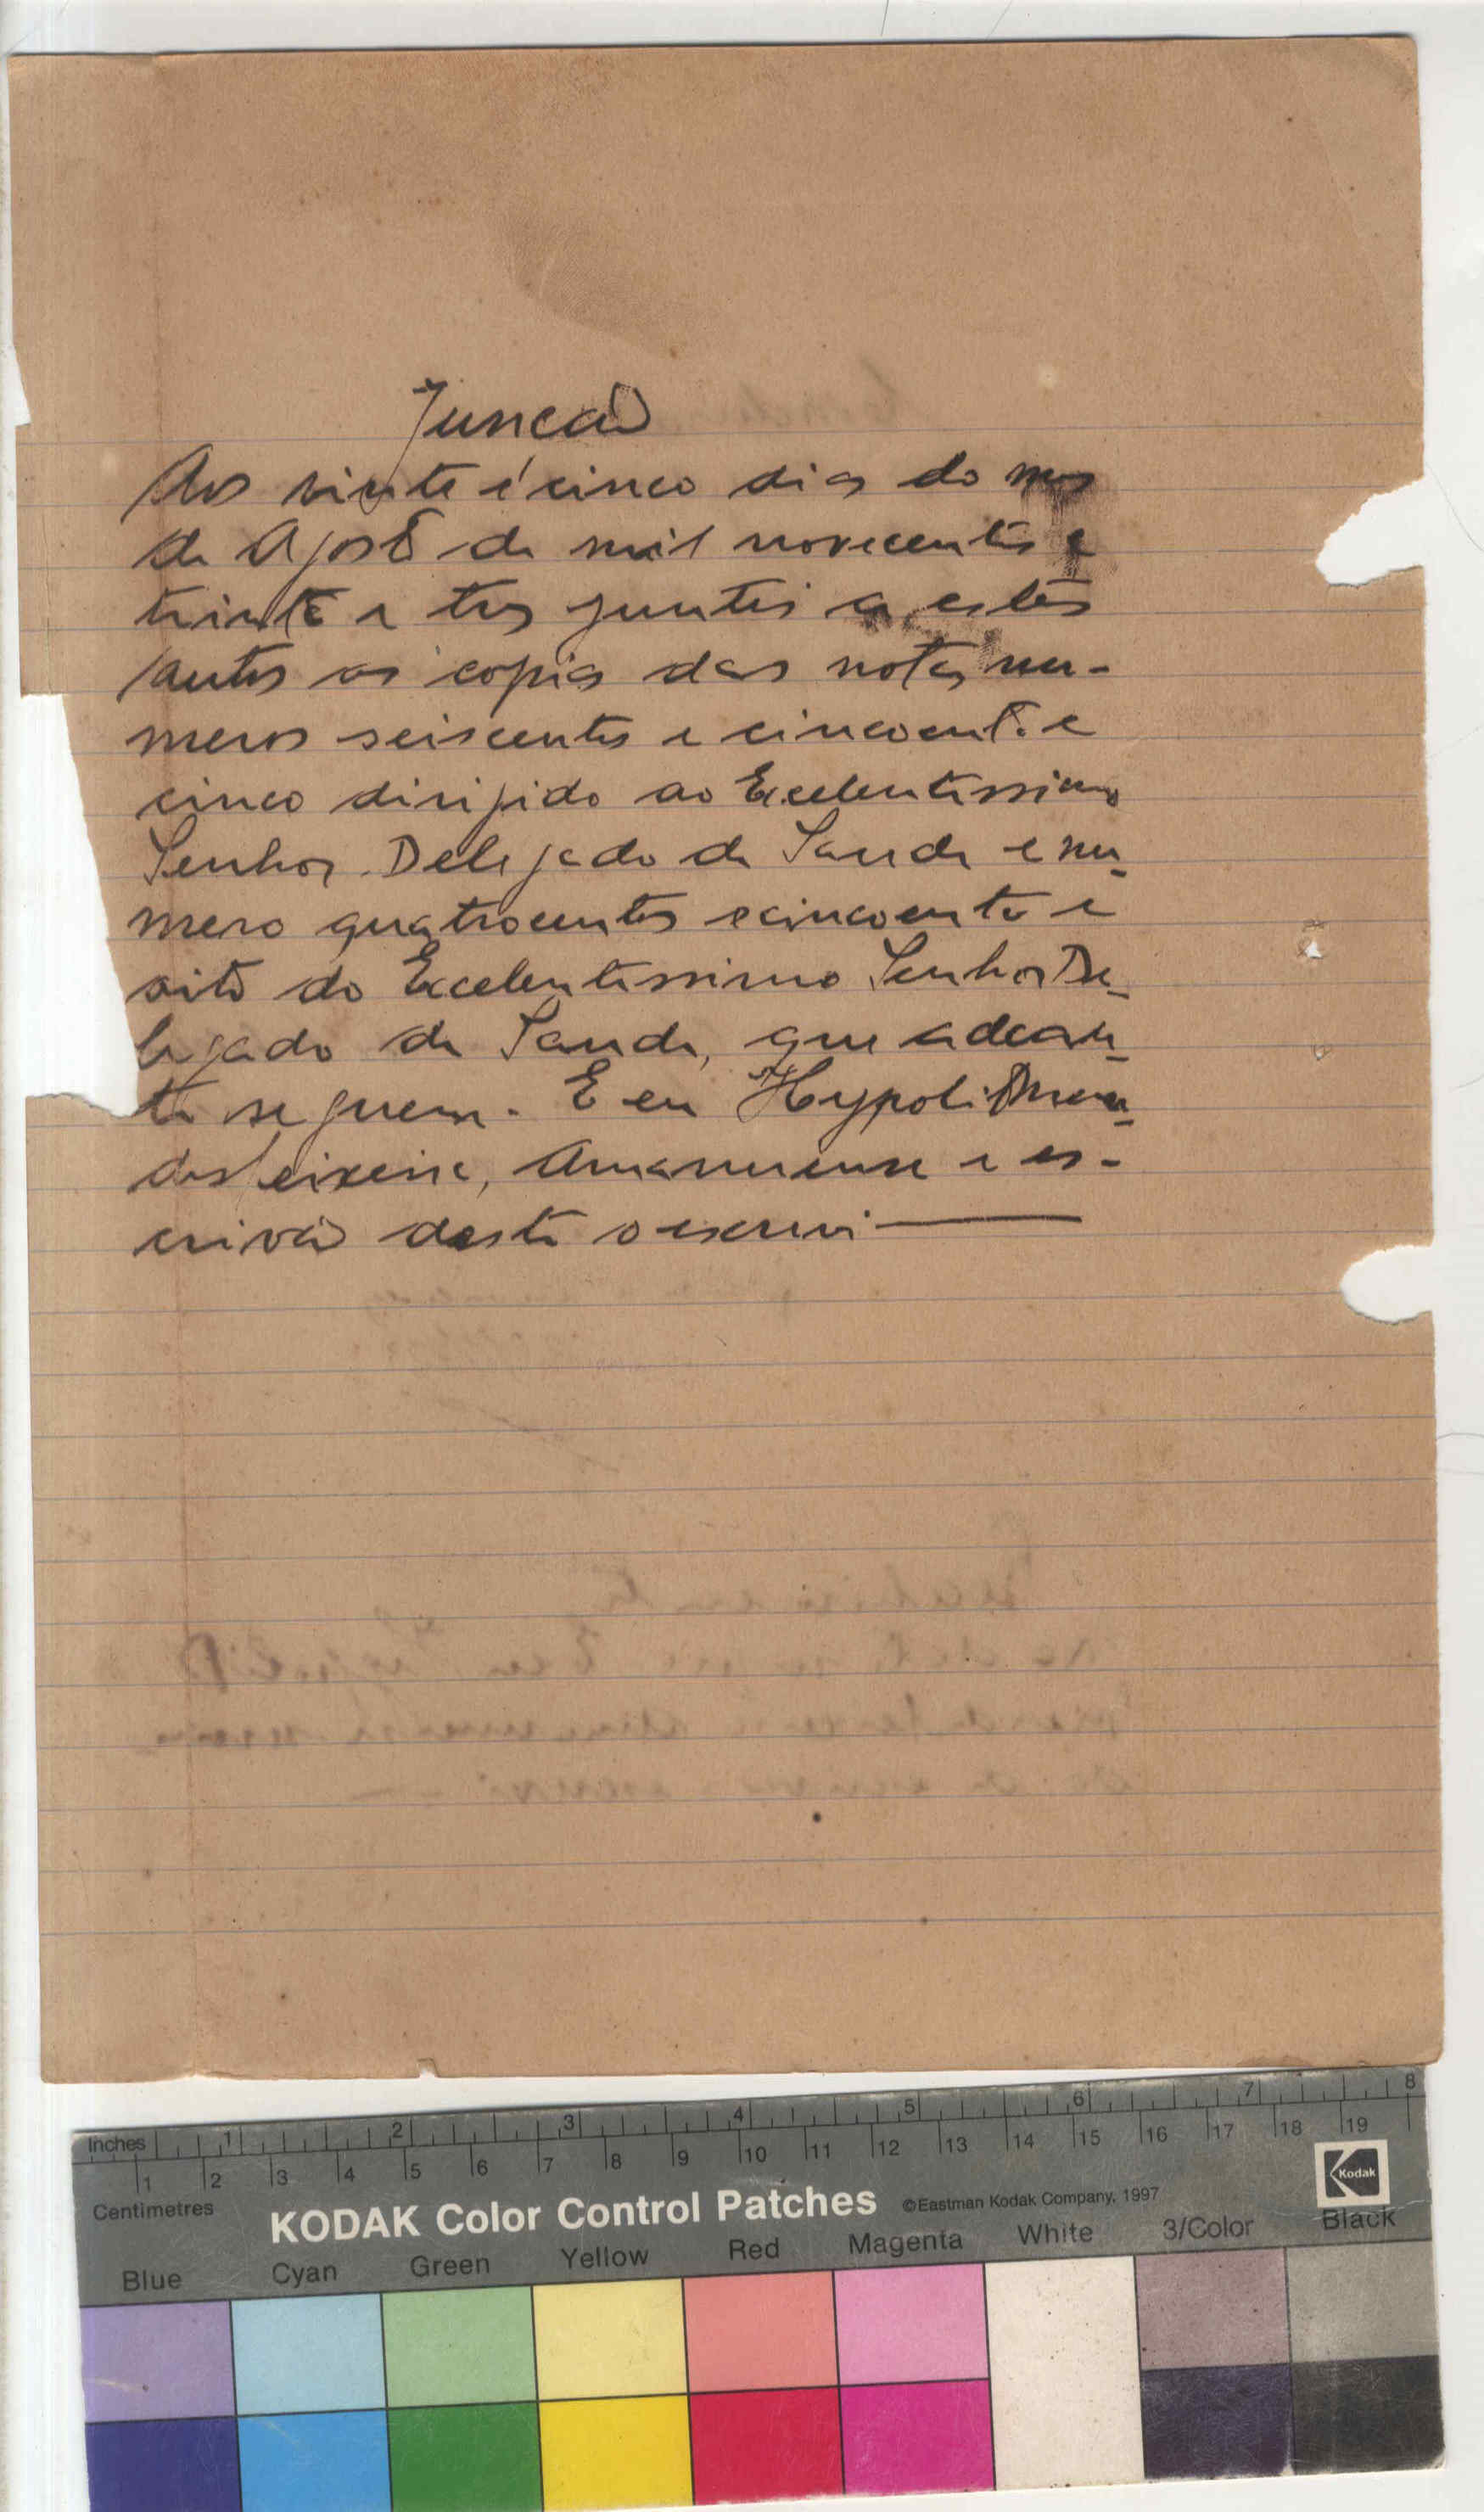 Juncão
Aos vinte e cinco dias do mes
de Agosto de mil novecentos e
trinta e tres juntei a estes
autos as copias das notas nu-
meros seiscentos e cincoenta e
cinco dirigido ao Excelentissimo
Senhor Delegado de Saude e nu-
mero quatrocentos e cincoenta e
oito do Excelentissimo Senhor De-
legado de Saude, que adean-
te seguem. E eu Hypolito Men-
des Teixeira, Amanuense e es-
crivão deste o escrevi
Inches 1 2 3 4 5 6 7 8
1 2 3 4 5 6 7 8 9 10 11 12 13 14 15 16 17 18 19
Centimetres
KODAK Color Control Patches ©Eastman Kodak Company, 1997 Kodak
Blue Cyan Green Yellow Red Magenta White 3/Color Black